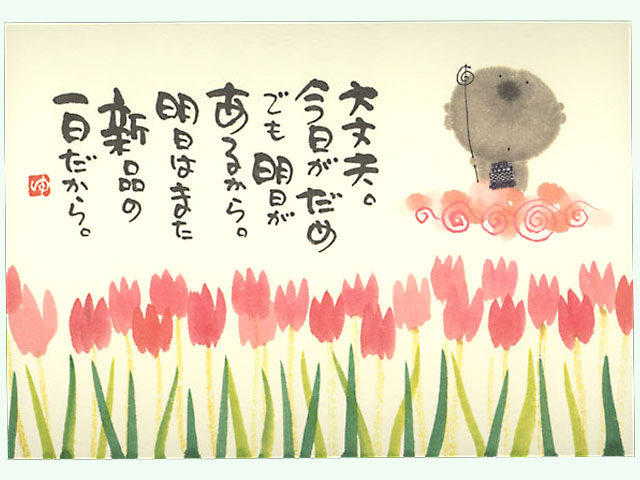 大丈夫。
今日がだめ
でも明日が
あるから。
明日はまた
新品の
一日だから。